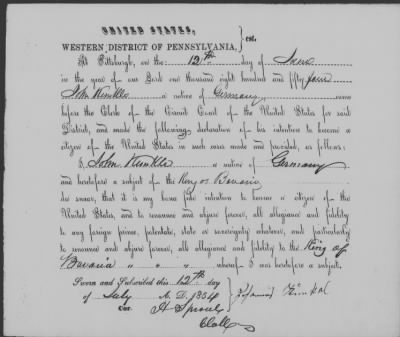 UNITED STATES,
WESTERN DISTRICT OF PENNSYLVANIA, } sct.
At Pittsburgh, on the 12th day of
in the year of our Lord one thousand eight hundred and fifty four
John Kunkle a native of Germany, came
before the Clerk of the Circuit Court of the United States for said
District, and made the following declaration of his intention to become a
citizen of the United States in such cases made and provided, as follows:
I, John Kunkle a native of Germany
and heretofore a subject of the King of Bavaria
do swear, that it is my bona fide intention to become a citizen of the
United States, and to renounce and abjure forever, all allegiance and fidelity
to any foreign prince, potentate, state or sovereignty whatever, and particularly
to renounce and abjure forever, all allegiance and fidelity to the King of
Bavaria " " " whereof I was heretofore a subject.
Sworn and Subscribed this 12th day
of July A. D. 1854
Cor. H Sproul
Clk